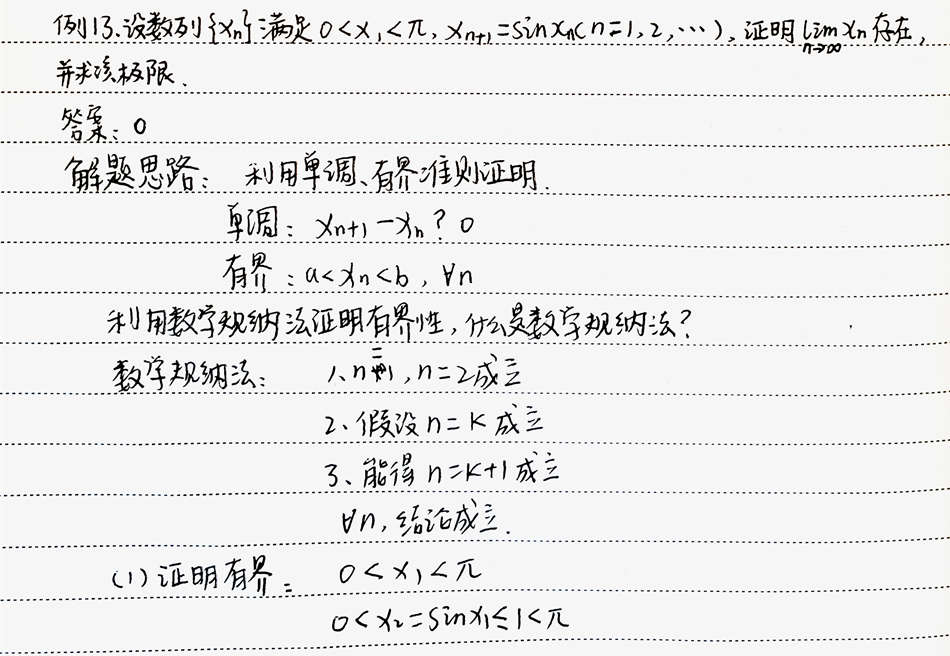 例13.设数列{xn}满足0<x₁<π, xn+1=sinxn(n=1,2,…),证明lim n→∞ xn存在,
并求该极限.
答案:0
解题思路: 利用单调、有界准则证明.
单调: xn+1-xn?0
有界:a<xn<b,∀n
利用数学规纳法证明有界性,什么是数学规纳法?
数学规纳法: 1、n=1,n=2成立
2、假设n=K成立
3、能得n=K+1成立
∀n,结论成立.
(1)证明有界: 0<x₁<π
0<x₂=sinx₁≤1<π